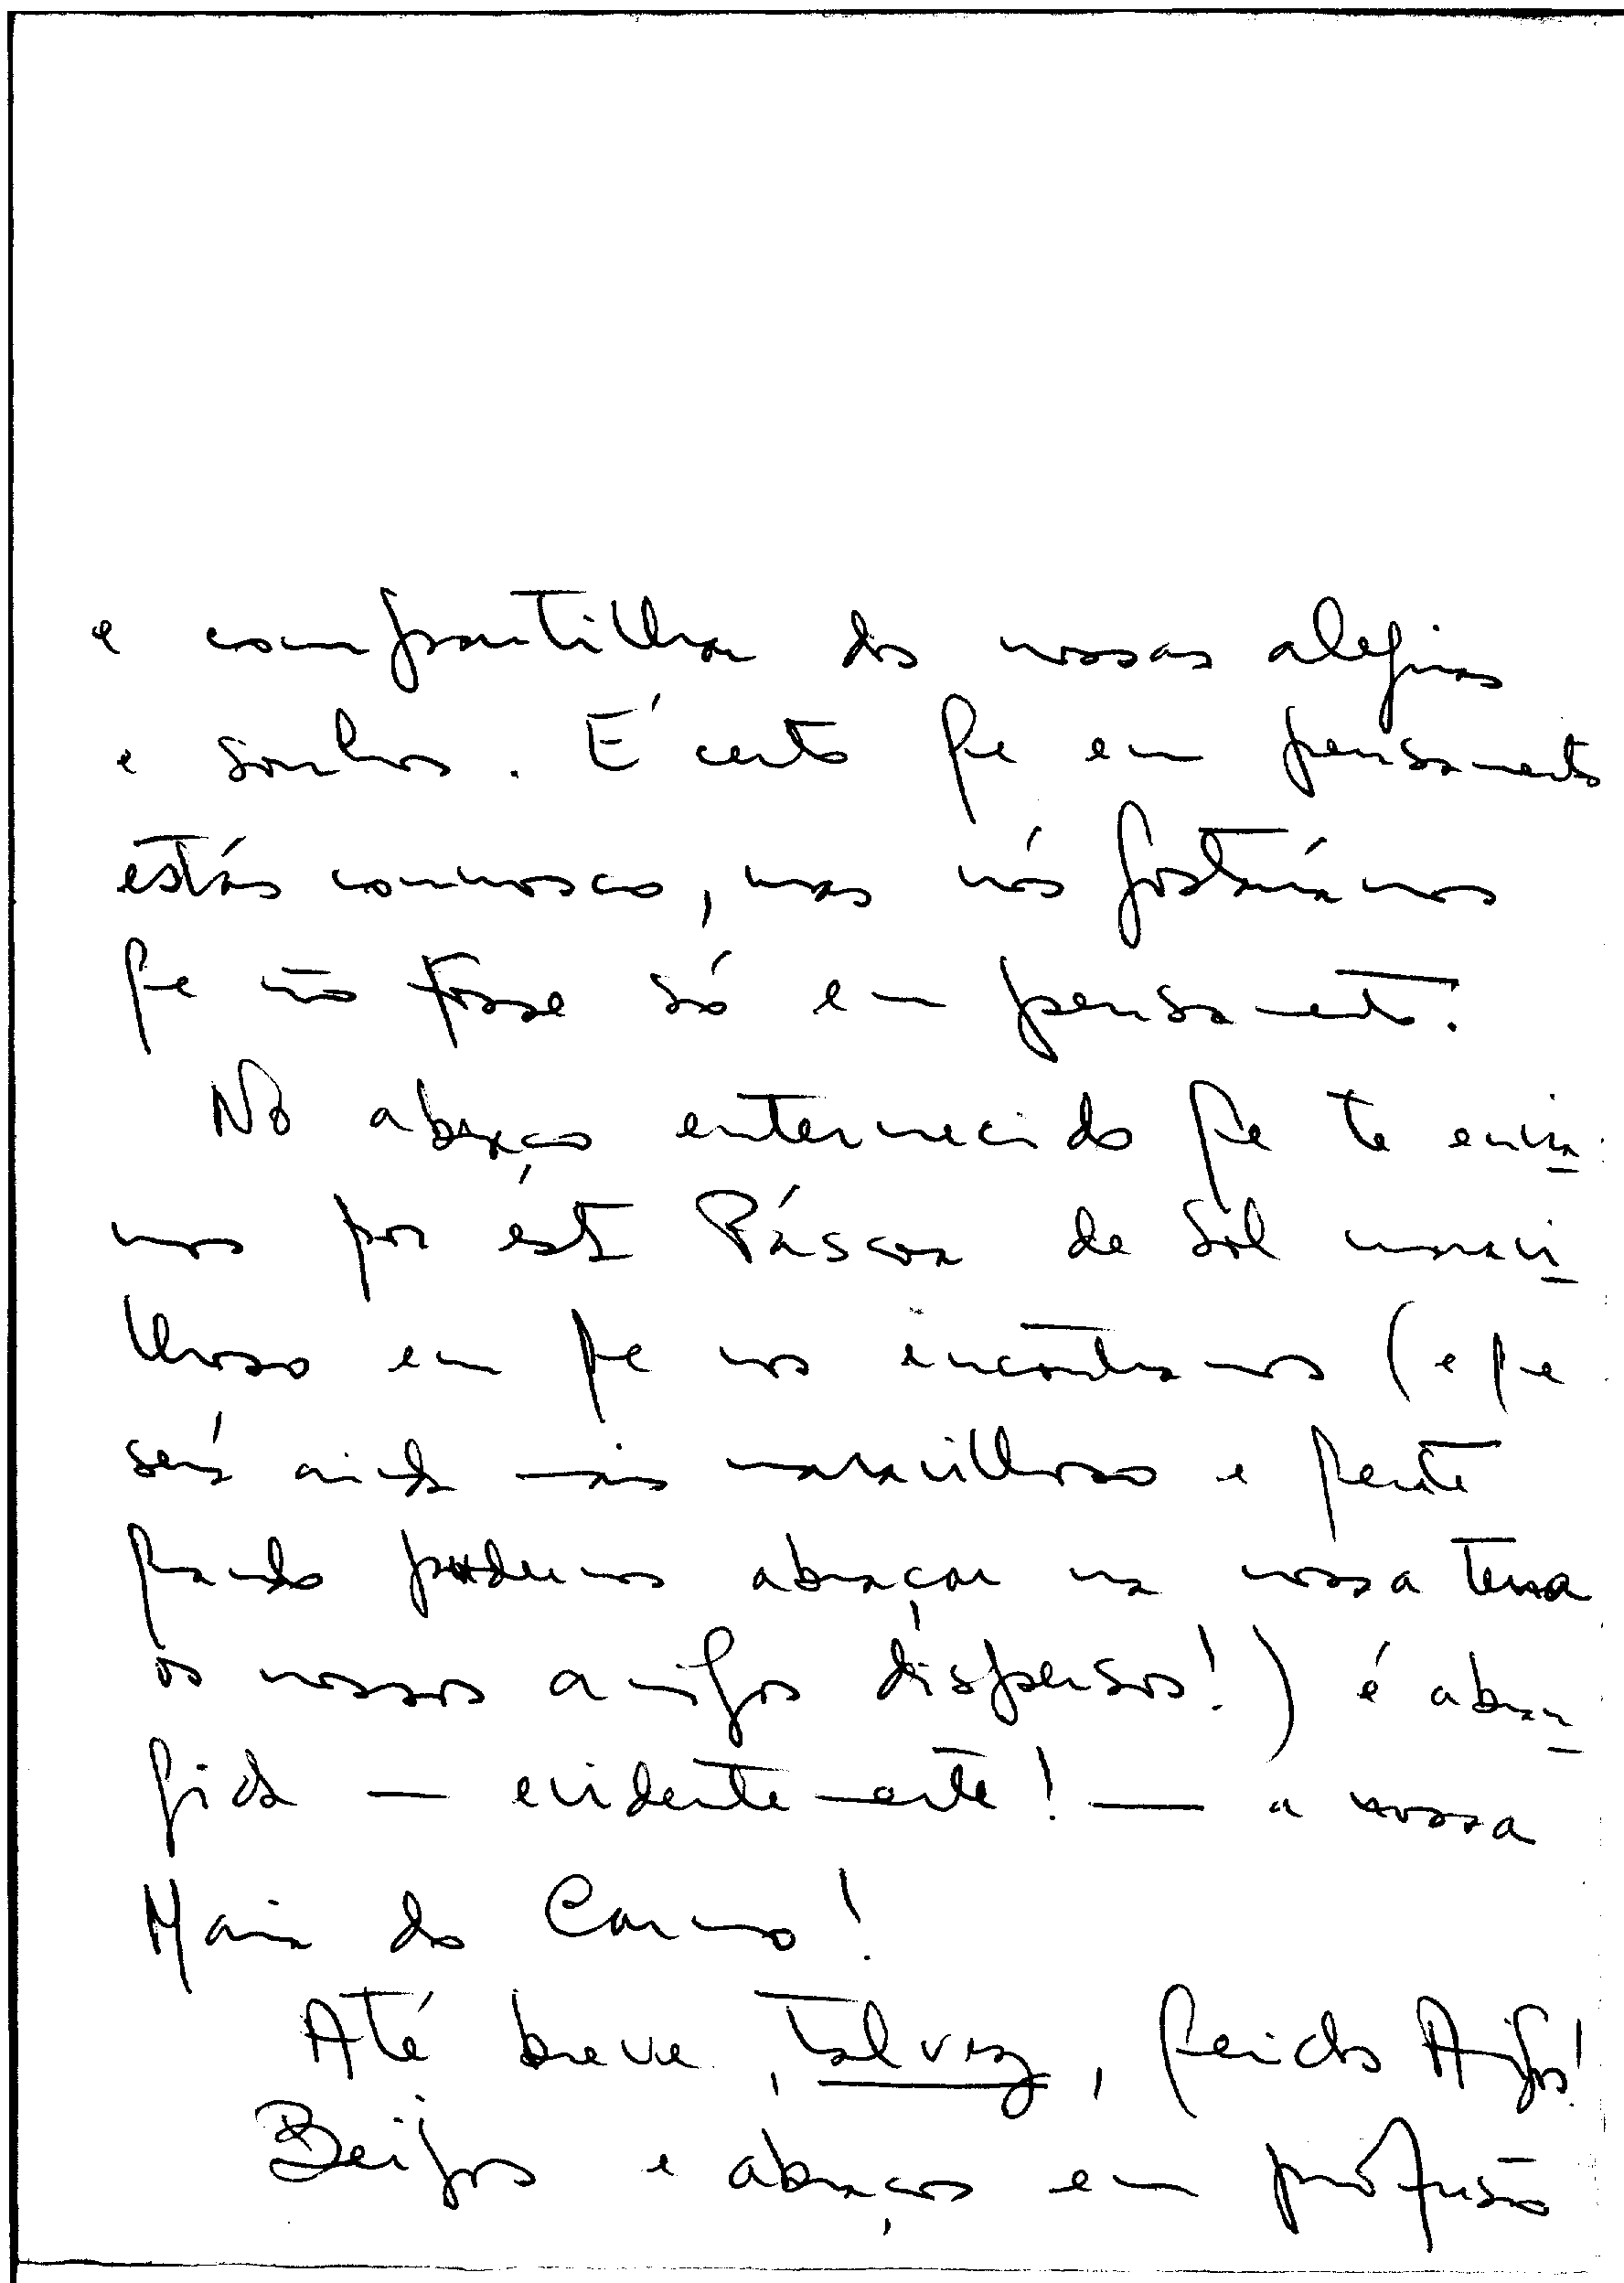 e compartilhar das nossas alegrias
e sonhos. É certo que em pensamento
estás connosco, mas nós gostaríamos
que não fosse só em pensamento.
No abraço enternecido que te envia-
mos por esta Páscoa de Sol maravi-
lhoso em que nos encontramos (e que
será ainda mais maravilhoso e quente
quando pudermos abraçar na nossa terra
os nossos amigos dispersos!) é abran-
gida — evidentemente! — a vossa
Maria do Carmo!
Até breve, talvez, querido Amigo!
Beijos e abraços em profusão